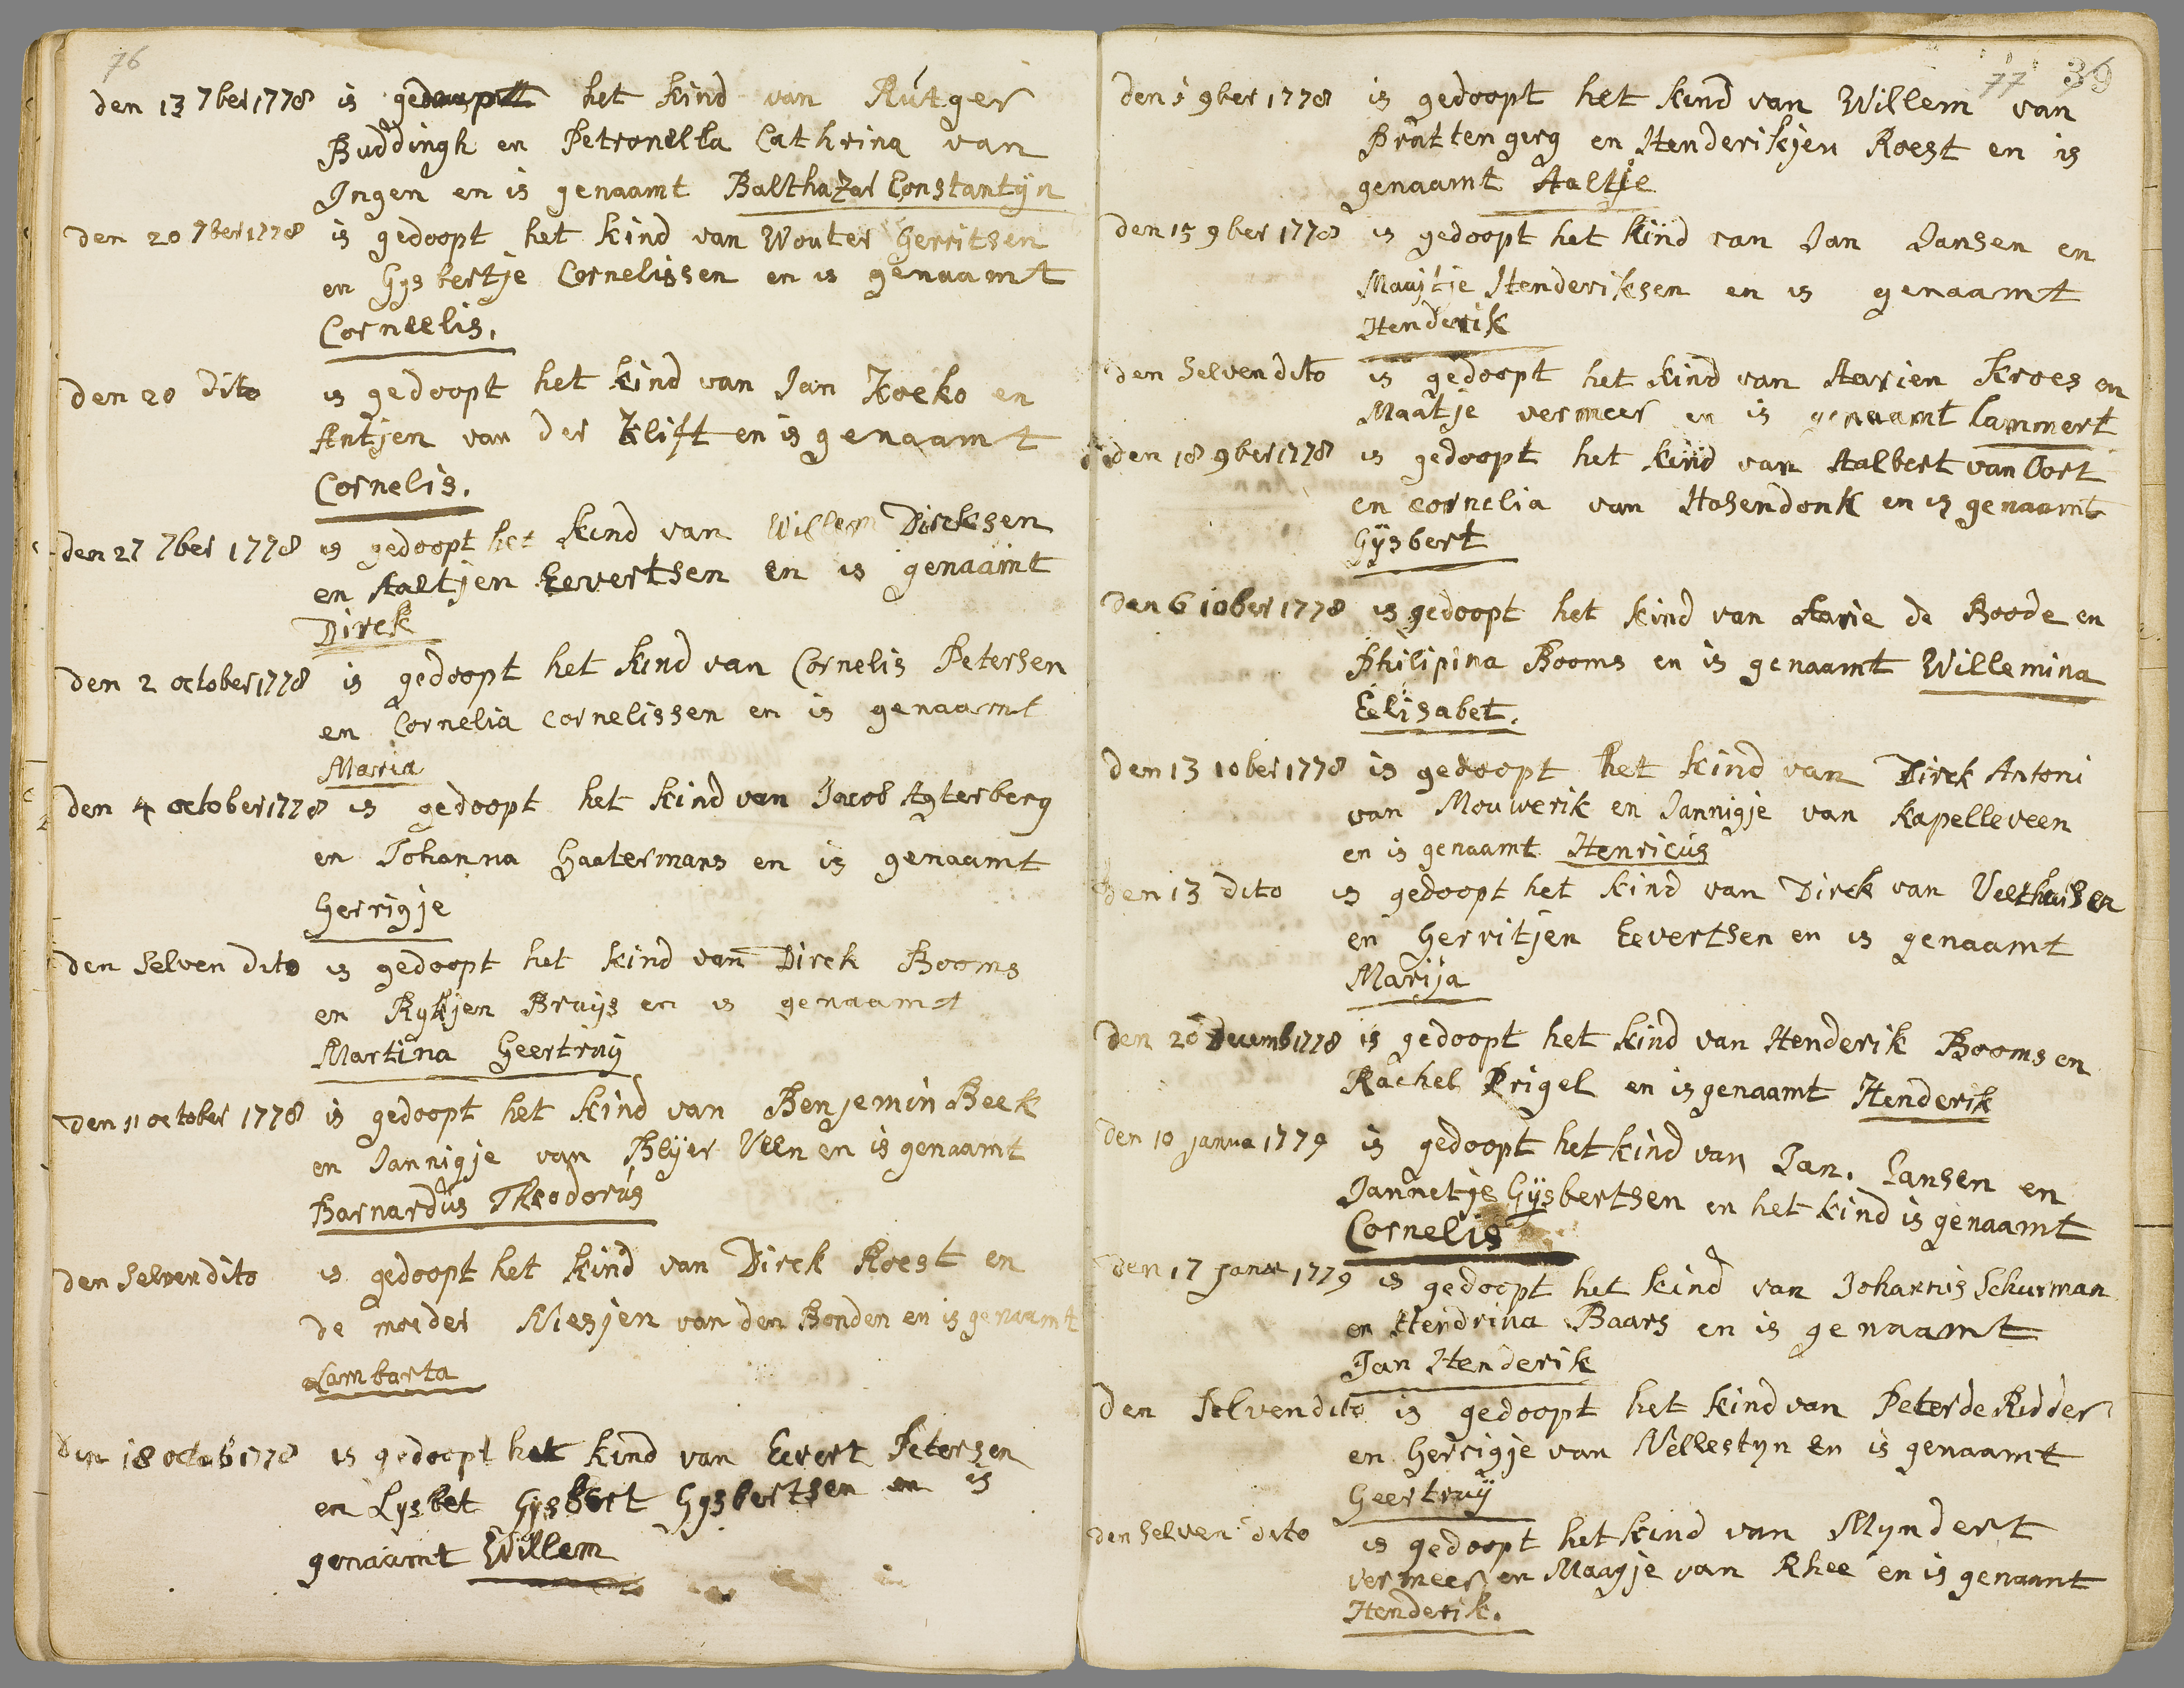 76
den 13 7ber 1778 is gedoopt het kind van Rutger
Buddingh en Petronella Cathrina van
Ingen en is genaamt Balthazar Constantijn
den 20 7ber 1778 is gedoopt het kind van Wouter Gerritsen
en Gysbertje Cornelissen en is genaamt
Corneelis.
den 20 dito is gedoopt het kind van Jan Koeko en
Antjen van der Klift en is genaamt
Cornelis.
den 27 7ber 1778 is gedoopt het kind van Willem Dircksen
en Aaltjen Eevertsen en is genaamt
Dirck
den 2 october 1778 is gedoopt het kind van Cornelis Petersen
en Cornelia cornelissen en is genaamt
Maria
den 4 october 1778 is gedoopt het kind van Jacob Agterberg
en Johanna Haatermans en is genaamt
Gerrigje
den selven dito is gedoopt het kind van Dirck Booms
en Rykjen Bruijs en is genaamt
Martina Geertruy
den 11 october 1778 is gedoopt het kind van Benjemin Beek
en Jannigje van Blijer Veen en is genaamt
Barnardus Theodorus
den selven dito is gedoopt het kind van Dirck Roest en
de moeder Niesjen van den Bonden en is genaamt
Lambarta
den 18 octob 1778 is gedoopt het kind van Eevert Petersen
en Lysbet Gysbert Gysbertsen en is
genaamt Willem
77 39
den 9ber 1778 is gedoopt het kind van Willem van
Brattengerg en Henderikjen Roest en is
genaamt Aaltje
den 15 9ber 1778 is gedoopt het kind van Jan Jansen en
Maaijtje Henderiksen en is genaamt
Henderik
den selven dito is gedoopt het kind van Aarien Kroes en
Maatje vermeer en is genaamt Lammert
den 18 9ber 1778 is gedoopt het kind van Aalbert van Oort
en cornelia van Hasendonk en is genaamt
Gijsbert
den 6 10ber 1778 is gedoopt het kind van Aarie de Boode en
Philipina Booms en is genaamt Willemina
Eelisabet.
den 13 10ber 1778 is gedoopt het kind van Dirck Antoni
van Mouwerik en Jannigje van Kapelleveen
en is genaamt Henricus
den 13 dito is gedoopt het kind van Dirck van Velthuisen
en Gerritjen Eevertsen en is genaamt
Marija
den 20 Decemb 1778 is gedoopt het kind van Henderik Booms en
Rachel Prigel en is genaamt Henderik
den 10 janua 1779 is gedoopt het kind van Jan. Jansen en
Jannetje Gijsbertsen en het kind is genaamt
Cornelis
den 17 janu 1779 is gedoopt het kind van Johannis Schurman
en Hendrina Baars en is genaamt
Jan Henderik
den selven dito is gedoopt het kind van Peter de Ridder
en Gerrigje van Nellestyn en is genaamt
Geertruij
den selven dito is gedoopt het kind van Myndert
vermeer en Maagje van Rhee en is genaamt
Henderik.